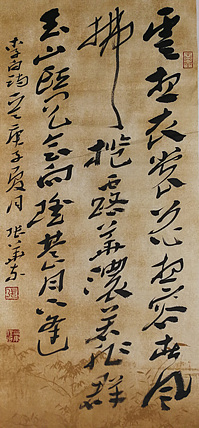 雲想衣裳花想容春風
拂檻露華濃若非群
玉山頭見會向瑤臺月下逢
庚子夏月張華